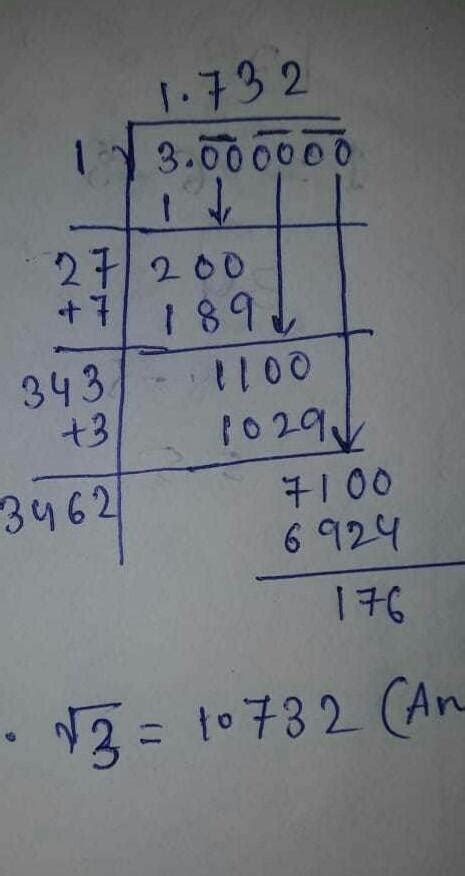 1.732
1 √ 3.000000
1
27 200
+7 189
343 1100
+3 1029
3462 7100
6924
176
. √3 = 1.732 (An